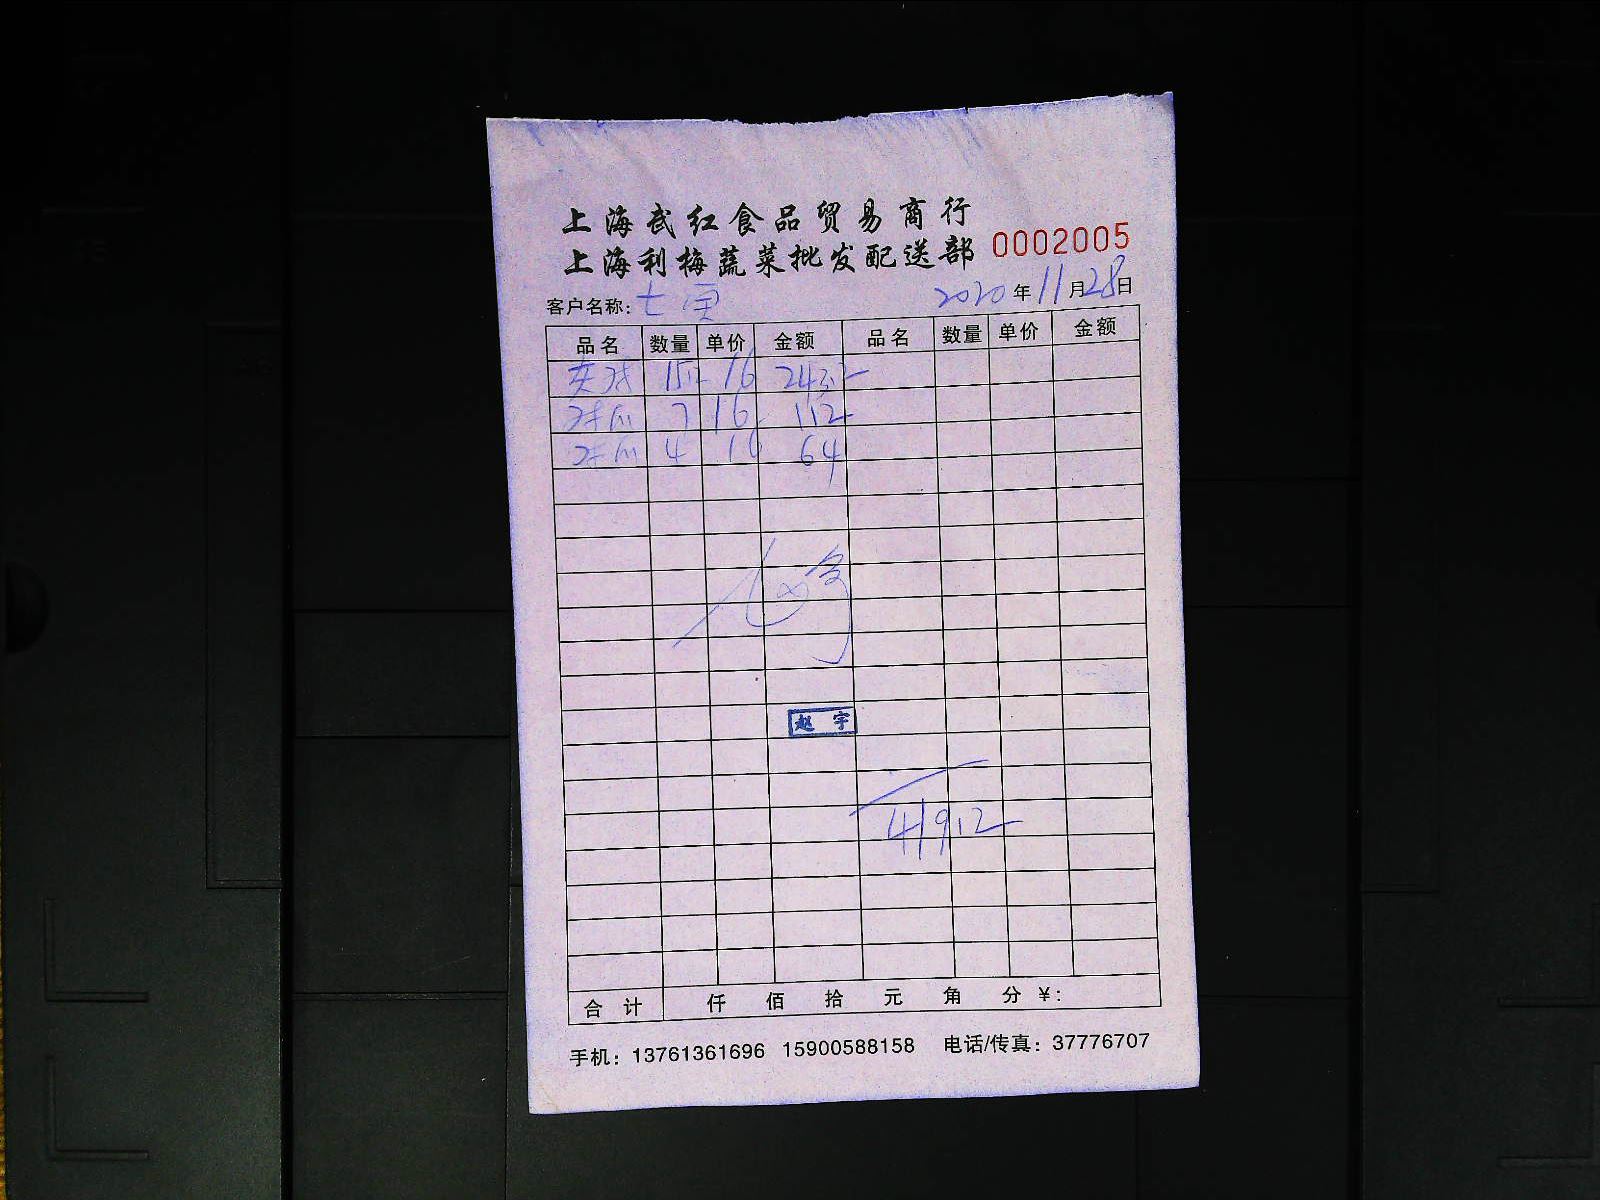 上海武红食品贸易商行
上海利梅蔬菜批发配送部 0002005
客户名称: 七 2020年11月28日
品名 数量 单价 金额 品名 数量 单价 金额
15.2 16 243.2
7 16 112
4 16 64
赵宇
419.2
合计 仟 佰 拾 元 角 分 ¥:
手机: 13761361696 15900588158 电话/传真: 37776707